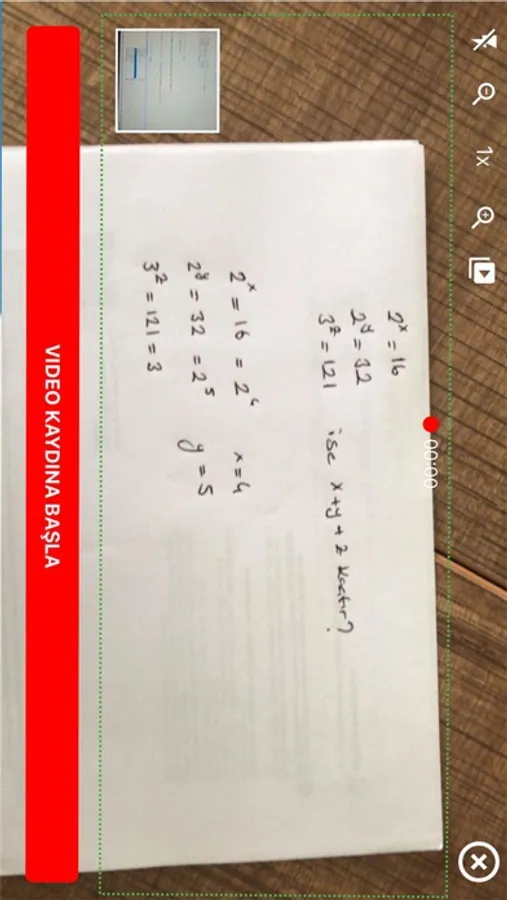 2ˣ = 16
2ʸ = 32
3ᶻ = 121 ise x+y+z kaçtır?
2ˣ = 16 = 2⁴ x=4
2ʸ = 32 = 2⁵ y = 5
3ᶻ = 121 = 3
00:00
1x
VIDEO KAYDINA BAŞLA